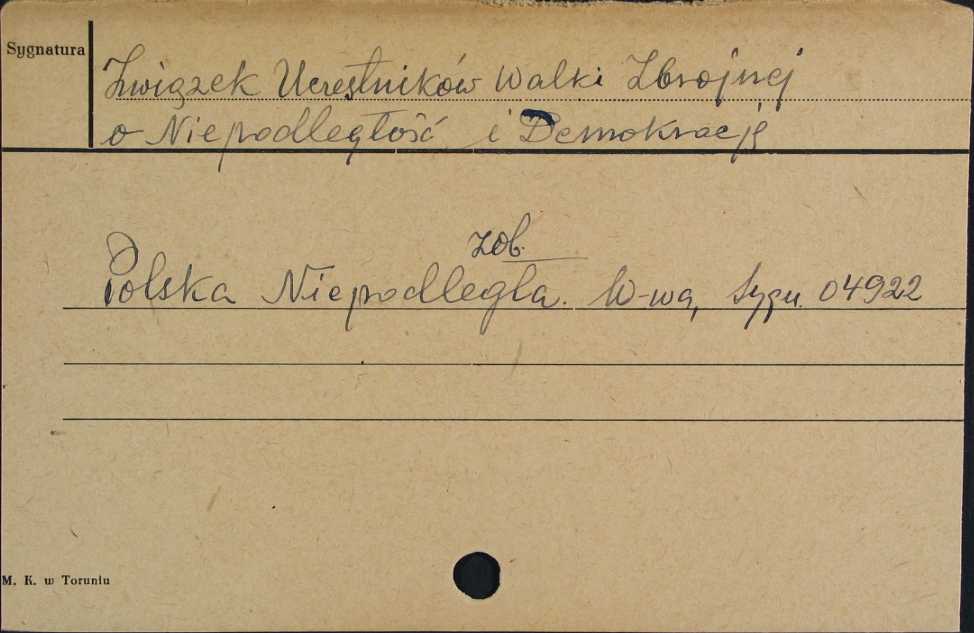 Sygnatura
Związek Uczestników Walki Zbrojnej
o Niepodległość i Demokrację
zob.
Polska Niepodległa. W-wa, Sygn. 04922
M. K. w Toruniu